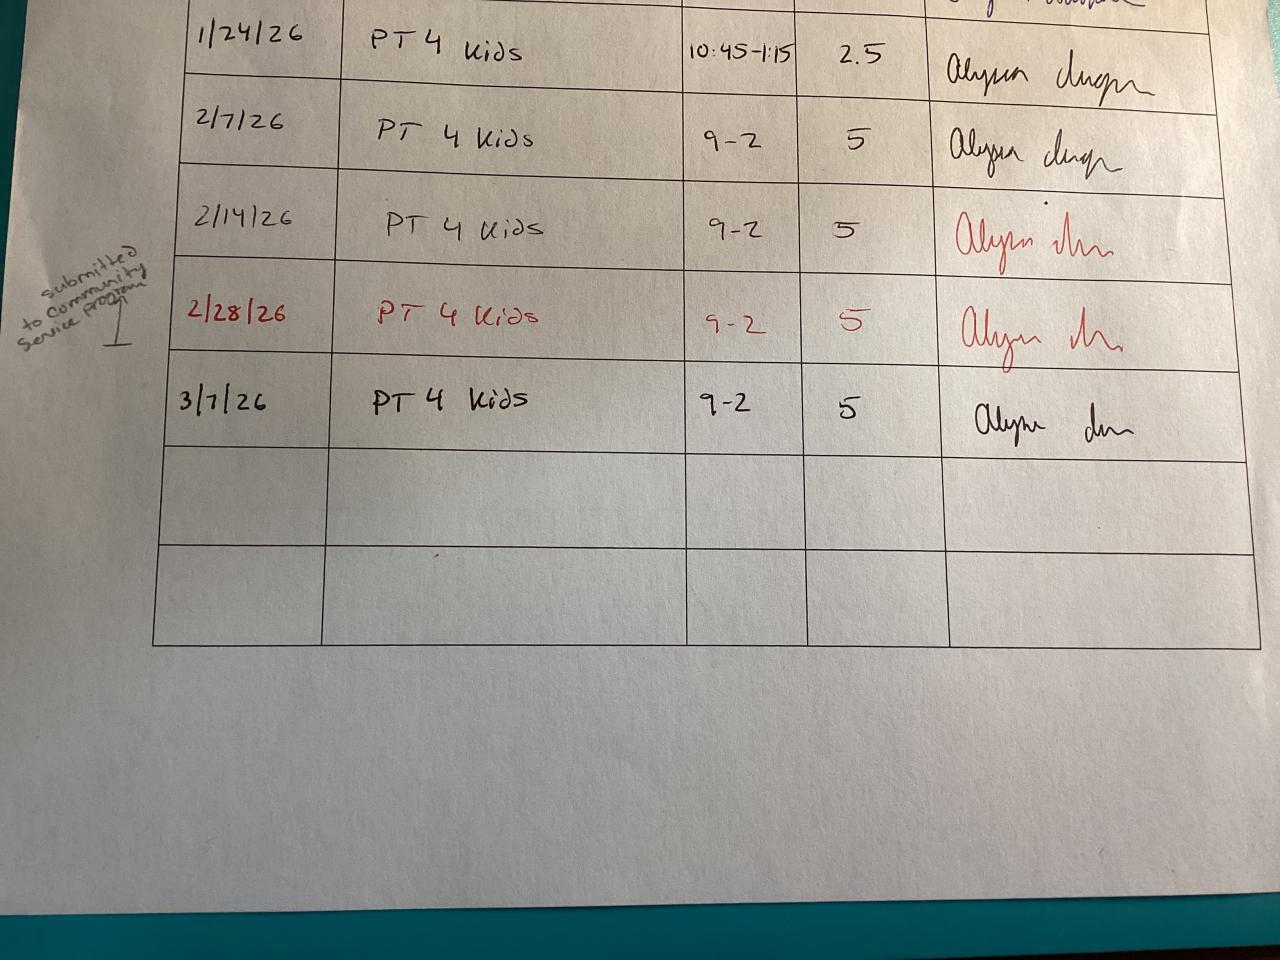 1/24/26 PT 4 Kids 10:45-1:15 2.5 Alyssa
2/7/26 PT 4 Kids 9-2 5 Alyssa
2/14/26 PT 4 Kids 9-2 5
2/28/26 PT 4 Kids 9-2 5
3/7/26 PT 4 Kids 9-2 5
submitted
to community
service program